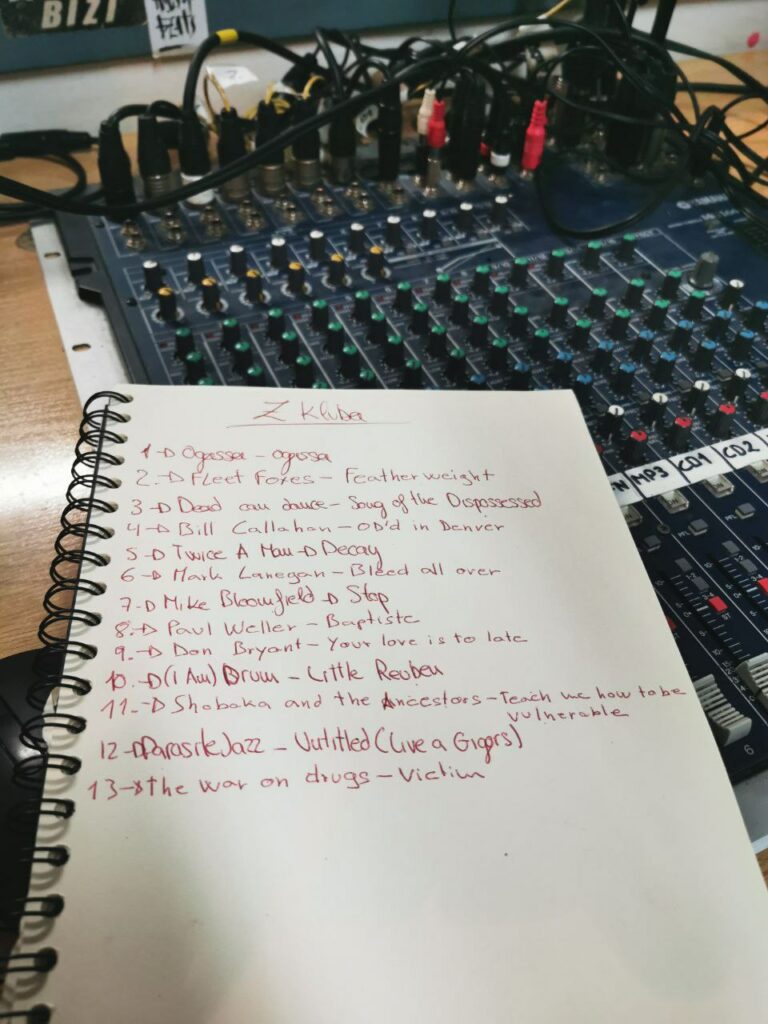 BIZI
Z Kluba
1 → Ogassa - ogassa
2. → Fleet Foxes - Featherweight
3 → Dead can dance - Song of the Dispossessed
4 → Bill Callahan - OD'd in Denver
5 → Twice A Man → Decay
6 → Mark Lanegan - Bleed all over
7. → Mike Bloomfield → Stop
8. → Paul Weller - Baptiste
9. → Don Bryant - Your love is to late
10. → (I Am) Drum - Little Reuben
11. → Shabaka and the Ancestors - Teach me how to be
vulnerable
12 → Parasite Jazz - Untitled (Live a Gigors)
13 → the war on drugs - Victim
YAMAHA
MP3
CD1
CD2
PFL
PFL
ST
6